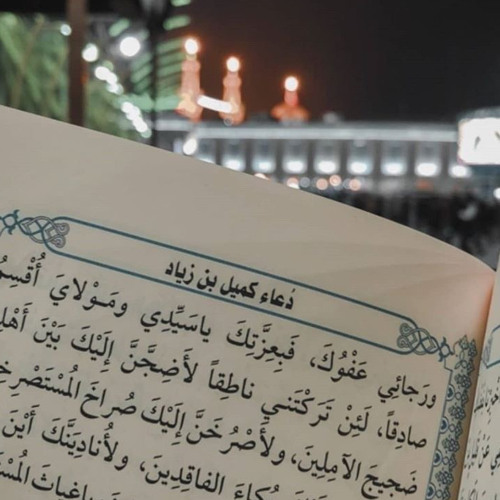 دُعاء كميل بن زياد
ورَجائِي عَفْوُكَ، فَبِعِزَّتِكَ ياسَيِّدِي ومَوْلايَ أُقْسِمُ
صادِقاً، لَئِنْ تَرَكْتَني ناطِقاً لأَضِجَّنَّ إلَيْكَ بَيْنَ
ضَجِيجَ الآمِلِينَ، ولأَصْرُخَنَّ إلَيْكَ صُراخَ
بُكاءَ الفاقِدِينَ، ولأُنادِيَنَّكَ أَيْنَ